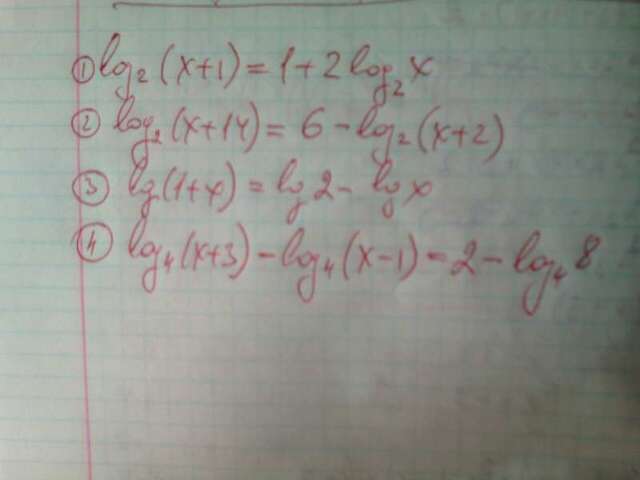 ① log₂(x+1)=1+2log₂x
② log₂(x+14)=6-log₂(x+2)
③ lg(1+x)=lg2-lgx
④ log₄(x+3)-log₄(x-1)=2-log₄8